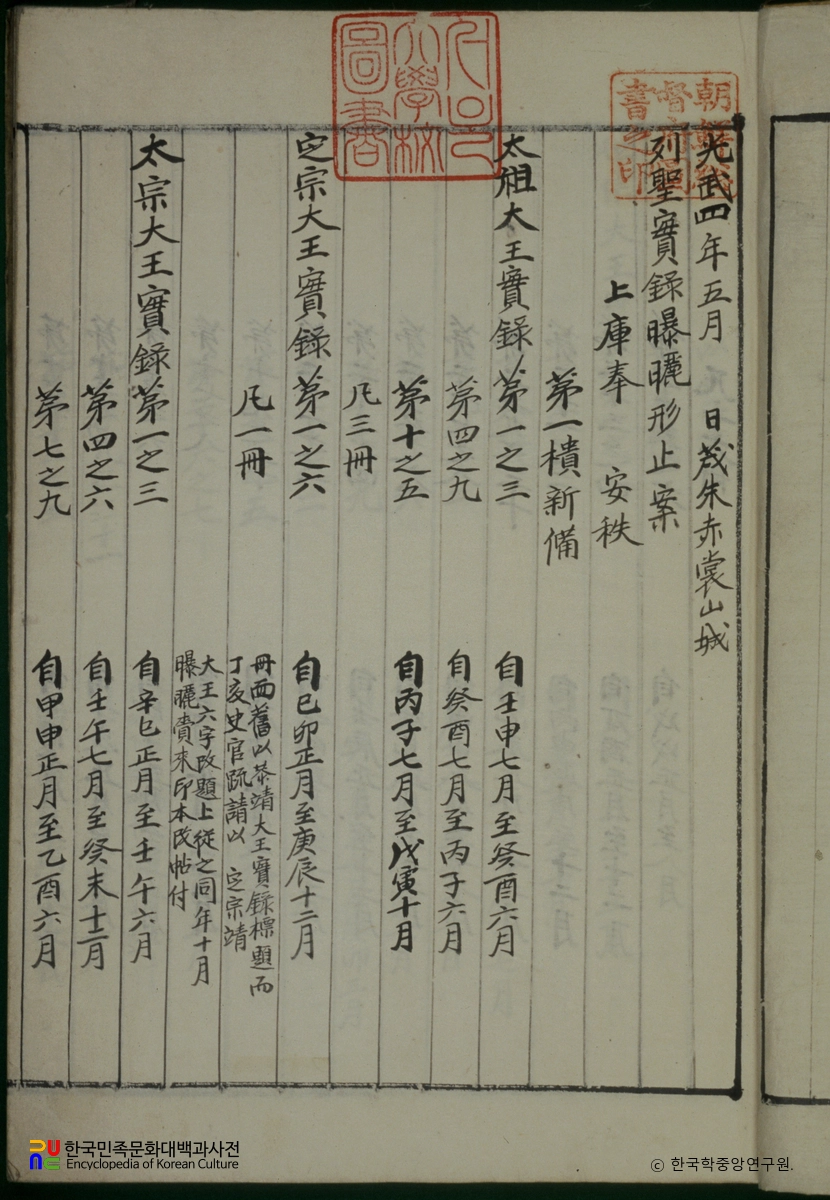 光武四年五月 日茂朱赤裳山城
列聖實錄曝曬形止案
上庫奉 安秩
第一樻新備
太祖大王實錄第一之三 自壬申七月至癸酉六月
第四之九 自癸酉七月至丙子六月
第十之五 自丙子七月至戊寅十月
凡三冊
定宗大王實錄第一之六 自己卯正月至庚辰十二月
凡一冊 冊面舊以恭靖大王實錄標題而
丁亥史官疏請以 定宗靖
大王六字改題上從之同年十月
曝曬賚來印本改帖付
太宗大王實錄第一之三 自辛巳正月至壬午六月
第四之六 自壬午七月至癸未十二月
第七之九 自甲申正月至乙酉六月
朝鮮總
督府圖
書之印
大學校
圖書
한국민족문화대백과사전
Encyclopedia of Korean Culture
© 한국학중앙연구원.